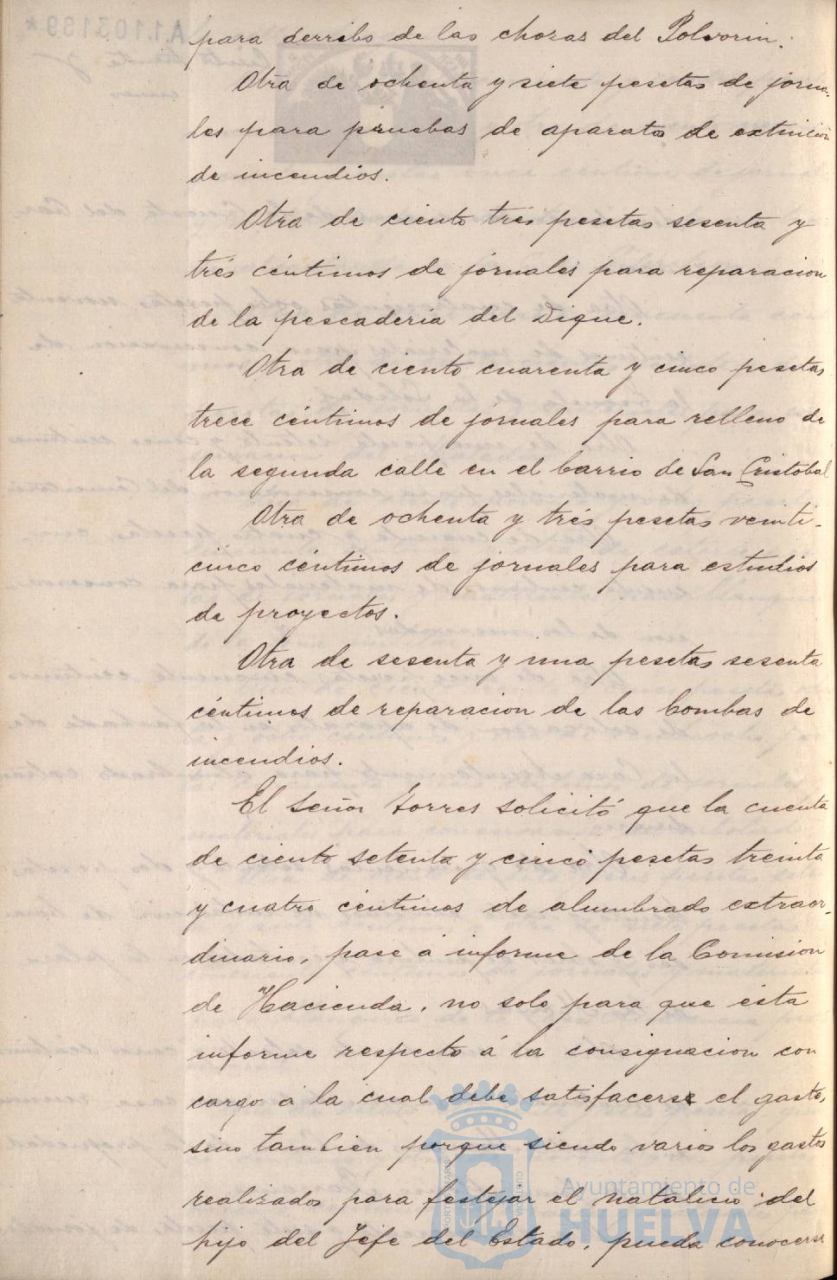 para derribo de las chozas del Polvorin.
Otra de ochenta y siete pesetas de jorna-
les para pruebas de aparatos de extinción
de incendios.
Otra de ciento tres pesetas sesenta y
tres céntimos de jornales para reparacion
de la pescaderia del Dique.
Otra de ciento cuarenta y cinco pesetas
trece céntimos de jornales para relleno de
la segunda calle en el barrio de San Cristobal
Otra de ochenta y tres pesetas veinti-
cinco céntimos de jornales para estudios
de proyectos.
Otra de sesenta y una pesetas sesenta
céntimos de reparacion de las bombas de
incendios.
El Señor Torres solicitó que la cuenta
de ciento setenta y cinco pesetas treinta
y cuatro céntimos de alumbrado extraor-
dinario, pase á informe de la Comision
de Hacienda, no solo para que ésta
informe respecto á la consignacion con
cargo á la cual debe satisfacerse el gasto,
sino tambien porque siendo varios los gastos
realizados para festejar el natalicio del
hijo del Jefe del Estado, pueda conocerse
Ayuntamiento de
HUELVA
A.1.103189*